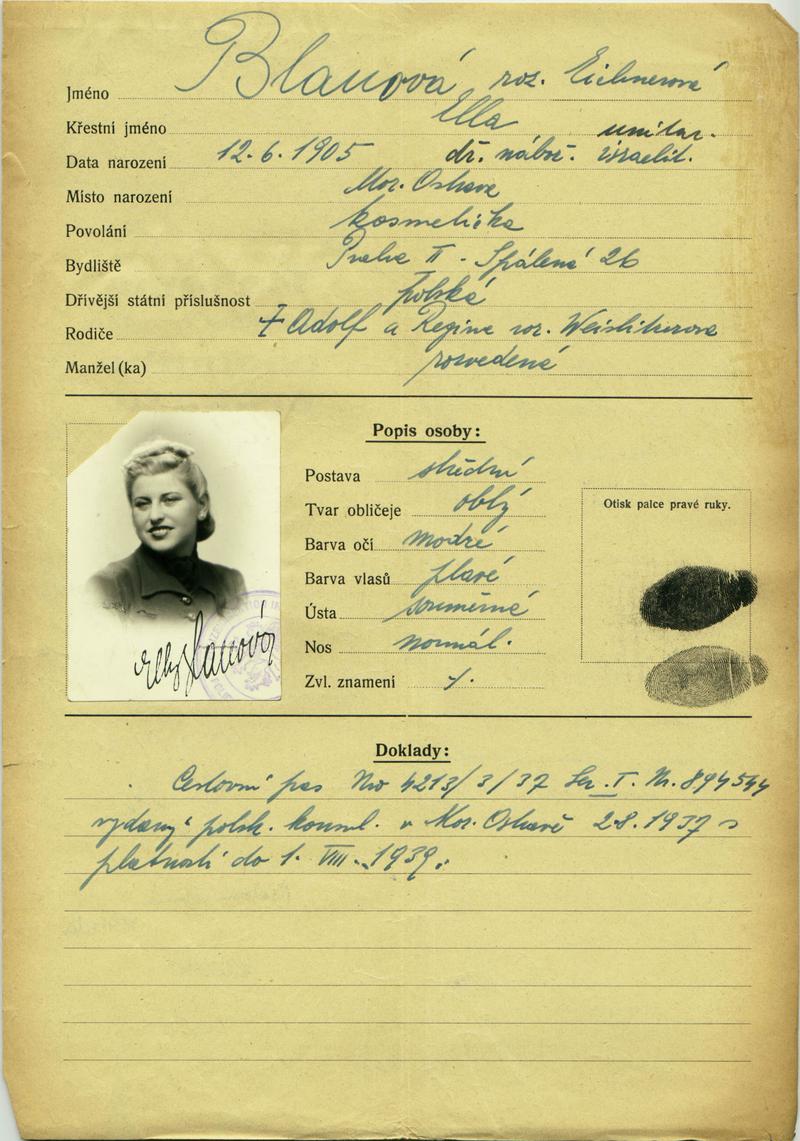 Jméno Blauová roz. Eichnerová
Křestní jméno Ella unitar.
Data narození 12. 6. 1905 dř. nábož. israelit.
Místo narození Mor. Ostrava
Povolání kosmetička
Bydliště Praha II - Spálená 26
Dřívější státní příslušnost polská
Rodiče Adolf a Regina roz.
Manžel (ka) rozvedená
Popis osoby:
Postava střední
Tvar obličeje oblý
Barva očí modré
Barva vlasů plavé
Ústa souměrná
Nos normál.
Zvl. znamení
Otisk palce pravé ruky.
Blauová
Doklady:
Cestovní pas No 4213/3/37 Ser. I. Nr. 894544
vydaný polsk. konsul. v Mor. Ostravě 2.8.1937 s
platností do 1. VIII. 1939.